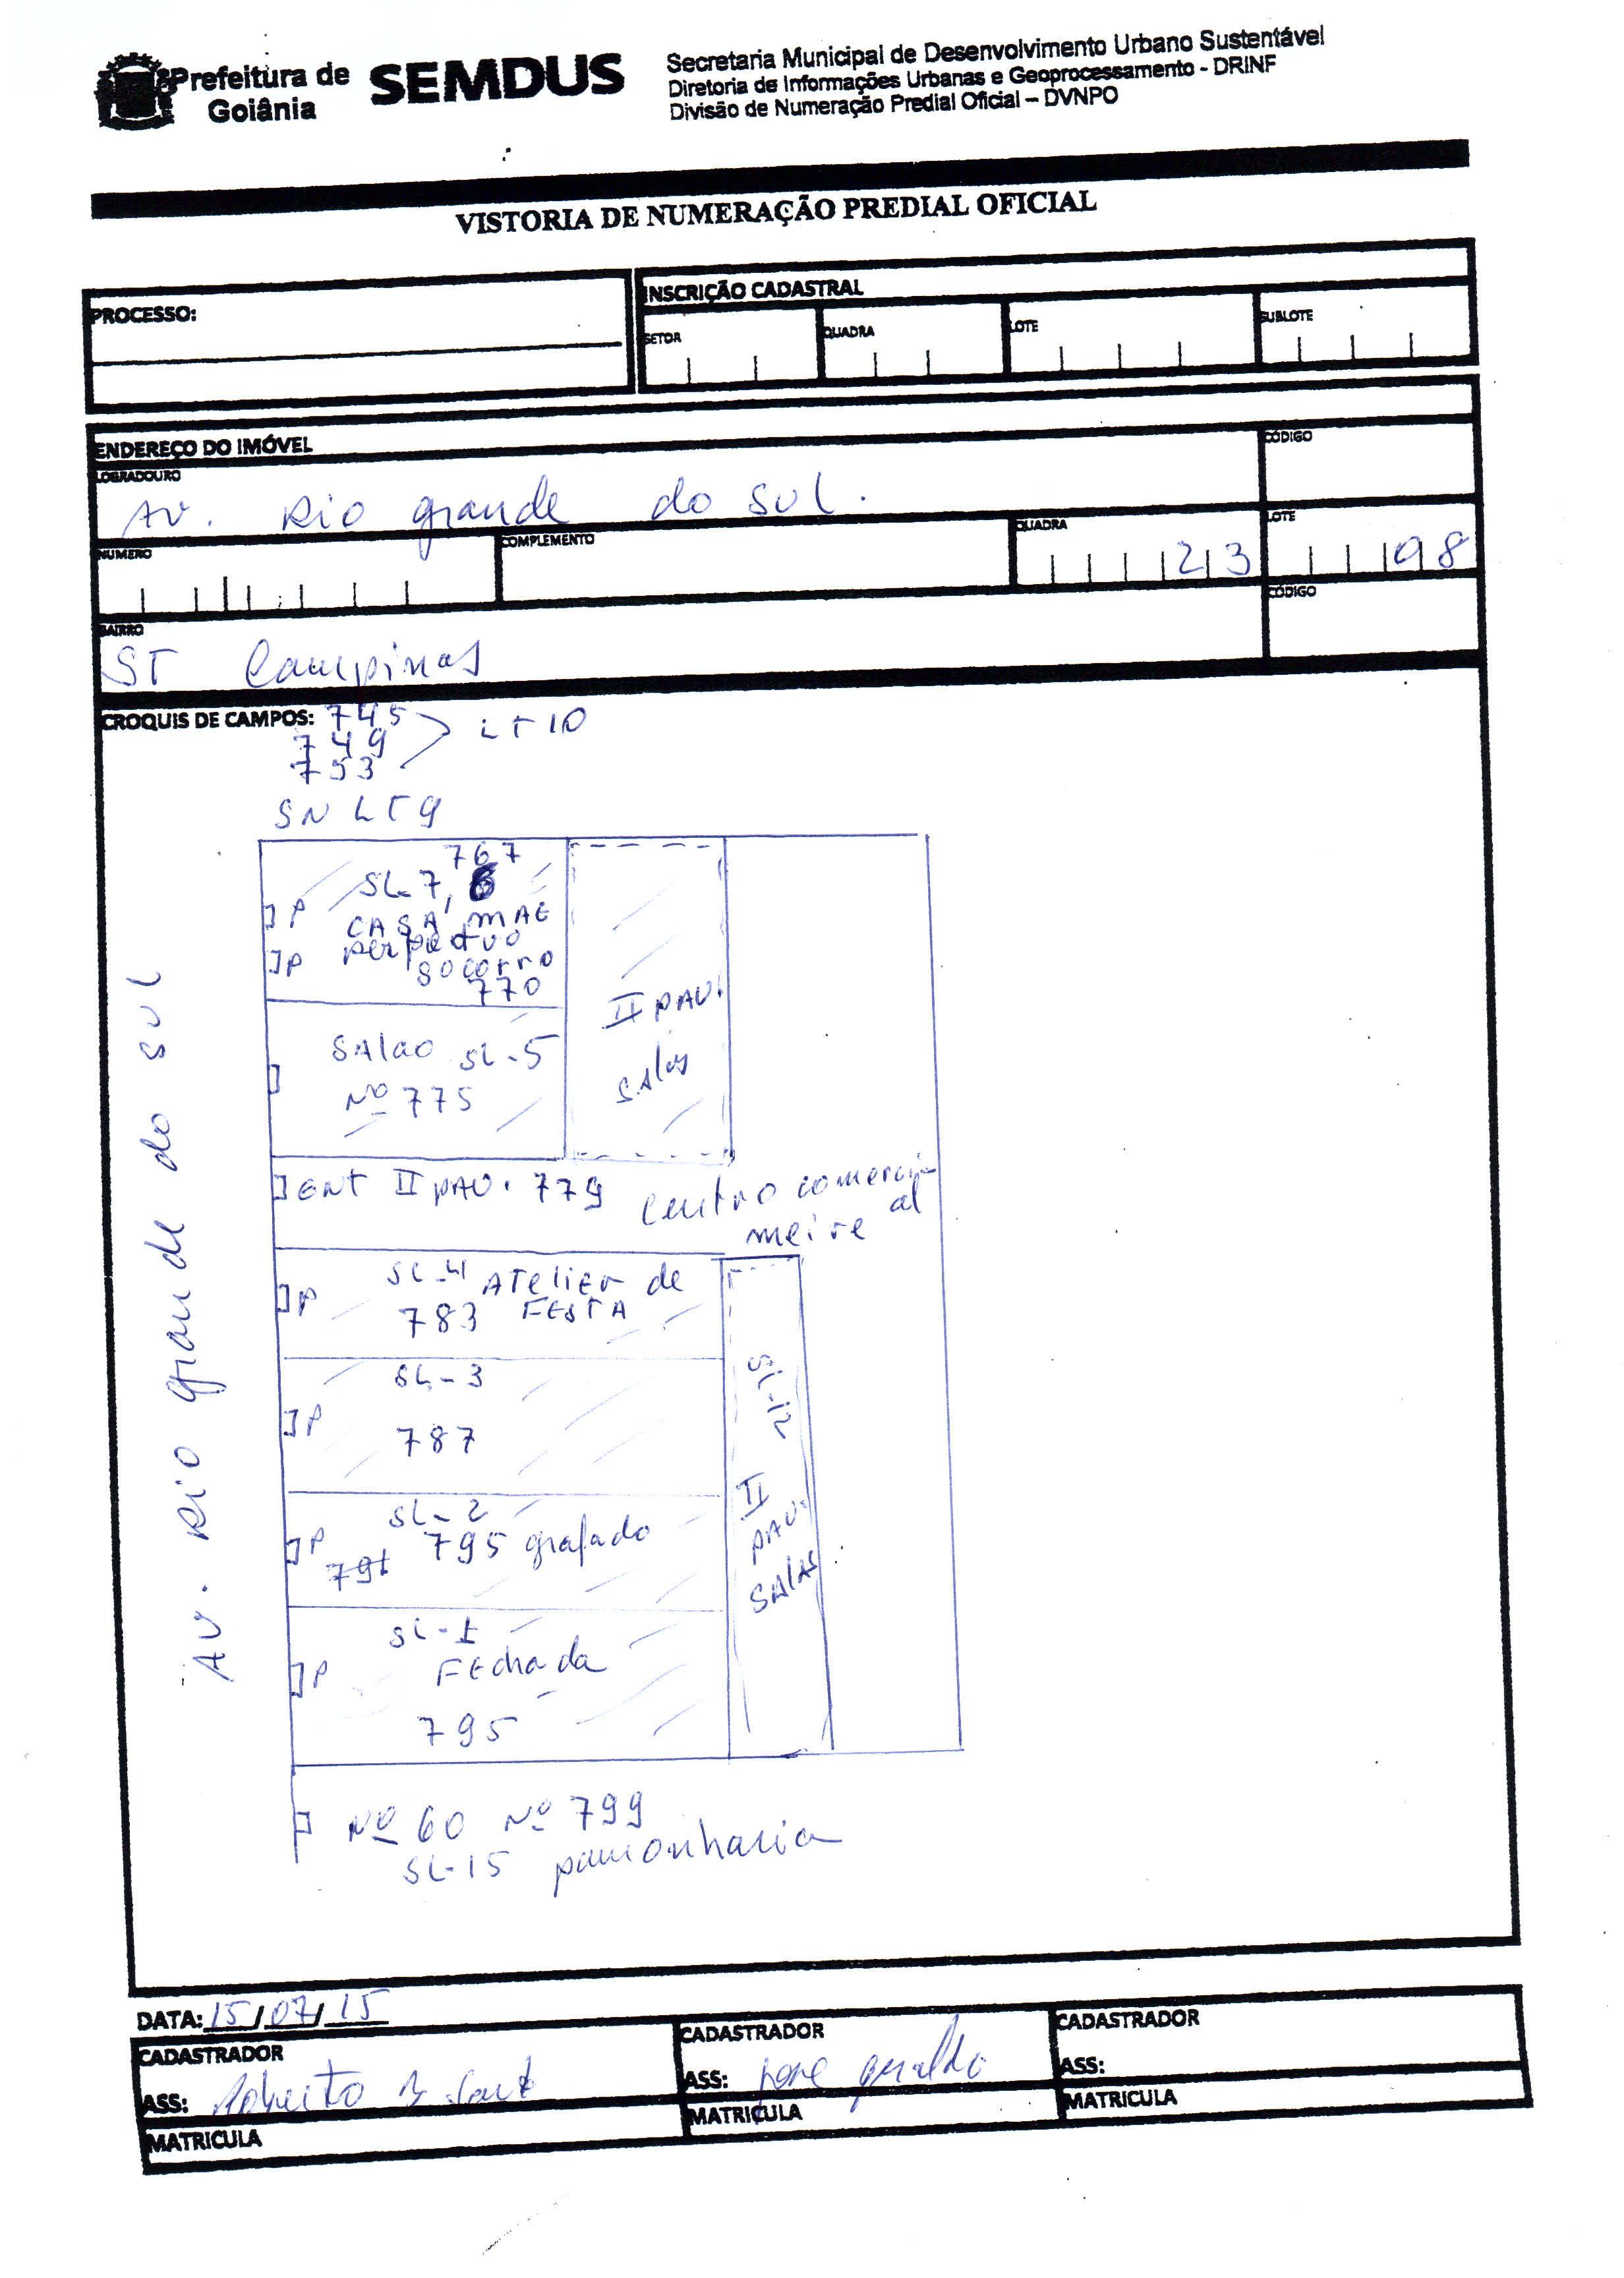 Prefeitura de
Goiânia
SEMDUS
Secretaria Municipal de Desenvolvimento Urbano Sustentável
Diretoria de Informações Urbanas e Geoprocessamento - DRINF
Divisão de Numeração Predial Oficial – DVNPO
VISTORIA DE NUMERAÇÃO PREDIAL OFICIAL
PROCESSO:
INSCRIÇÃO CADASTRAL
SETOR QUADRA LOTE SUBLOTE
ENDEREÇO DO IMÓVEL
LOGRADOURO CÓDIGO
AV. Rio grande do sul.
NUMERO COMPLEMENTO QUADRA LOTE
23 08
BAIRRO CÓDIGO
ST Campinas
CROQUIS DE CAMPOS: 745
749 LT 10
753
SN LT 9
767
SL-7, 6
P CASA MAE
P perpetuo
socorro
770
II PAV.
SAlas
SAlao SL-5
Nº 775
ENT II PAV. 779 Centro comerci
al
meire
SL-4 ATelier de
P 783 FESTA
SL-3
P 787
SL-2
P 795 grafado
791
SL-1
P Fechada
795
SL-12
II
PAV.
SALAS
AV. Rio grande do sul
Nº 60 Nº 799
SL-15 pamonharia
DATA: 15/07/15
CADASTRADOR CADASTRADOR CADASTRADOR
ASS: Roberto ASS: jose geraldo ASS:
MATRICULA MATRICULA MATRICULA